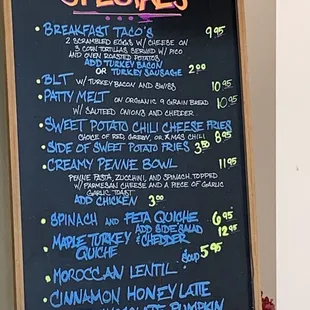 SPECIALS
• BREAKFAST TACO'S 9.95
2 SCRAMBLED EGGS W/ CHEESE ON
3 CORN TORTILLAS SERVED W/ PICO
AND OVEN ROASTED POTATOS
ADD TURKEY BACON
OR TURKEY SAUSAGE 2.00
• BLT W/ TURKEY BACON AND SWISS 10.95
• PATTY MELT - ON ORGANIC 9 GRAIN BREAD 10.95
W/ SAUTEED ONIONS AND CHEDDER
• SWEET POTATO CHILI CHEESE FRIES
CHOICE OF RED, GREEN, OR X-MAS CHILI 8.95
• SIDE OF SWEET POTATO FRIES 3.50
• CREAMY PENNE BOWL 11.95
PENNE PASTA, ZUCCHINI, AND SPINACH, TOPPED
W/ PARMESAN CHEESE AND A PIECE OF GARLIC
GARLIC TOAST
ADD CHICKEN 3.00
• SPINACH AND FETA QUICHE 6.95
ADD SIDE SALAD 12.95
• MAPLE TURKEY & CHEDDER
QUICHE
SOUP 5.95
• MOROCCAN LENTIL
• CINNAMON HONEY LATE
PUMPKIN